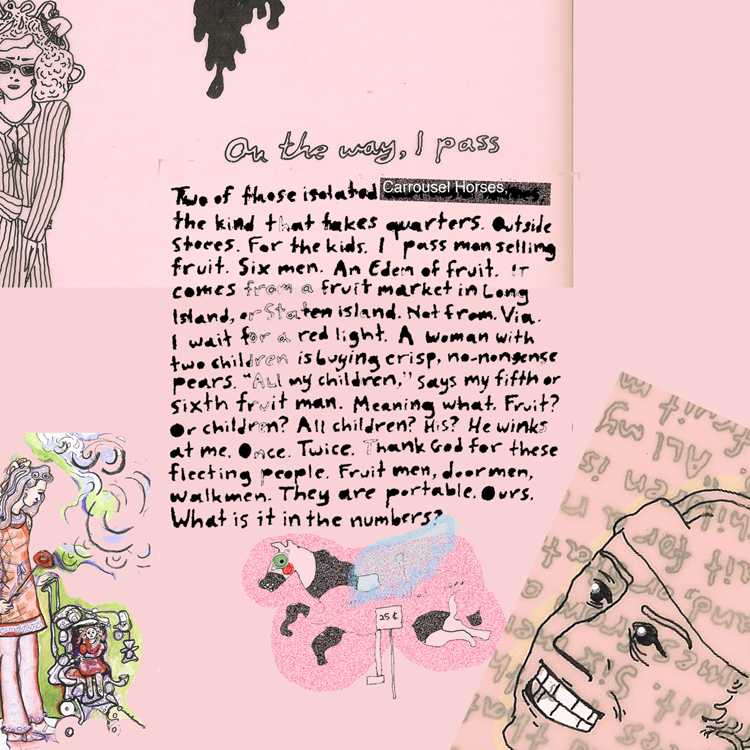 On the way, I pass
Two of those isolated Carrousel Horses,
the kind that takes quarters. Outside
stores. For the kids. I pass man selling
fruit. Six men. An Eden of fruit. IT
comes from a fruit market in Long
Island, or Staten island. Not from. Via.
I wait for a red light. A woman with
two children is buying crisp, no-nonsense
pears. "All my children," says my fifth or
sixth fruit man. Meaning what. Fruit?
Or children? All children? His? He winks
at me. Once. Twice. Thank God for these
fleeting people. Fruit men, doormen,
walkmen. They are portable. Ours.
What is it in the numbers?
25 ¢